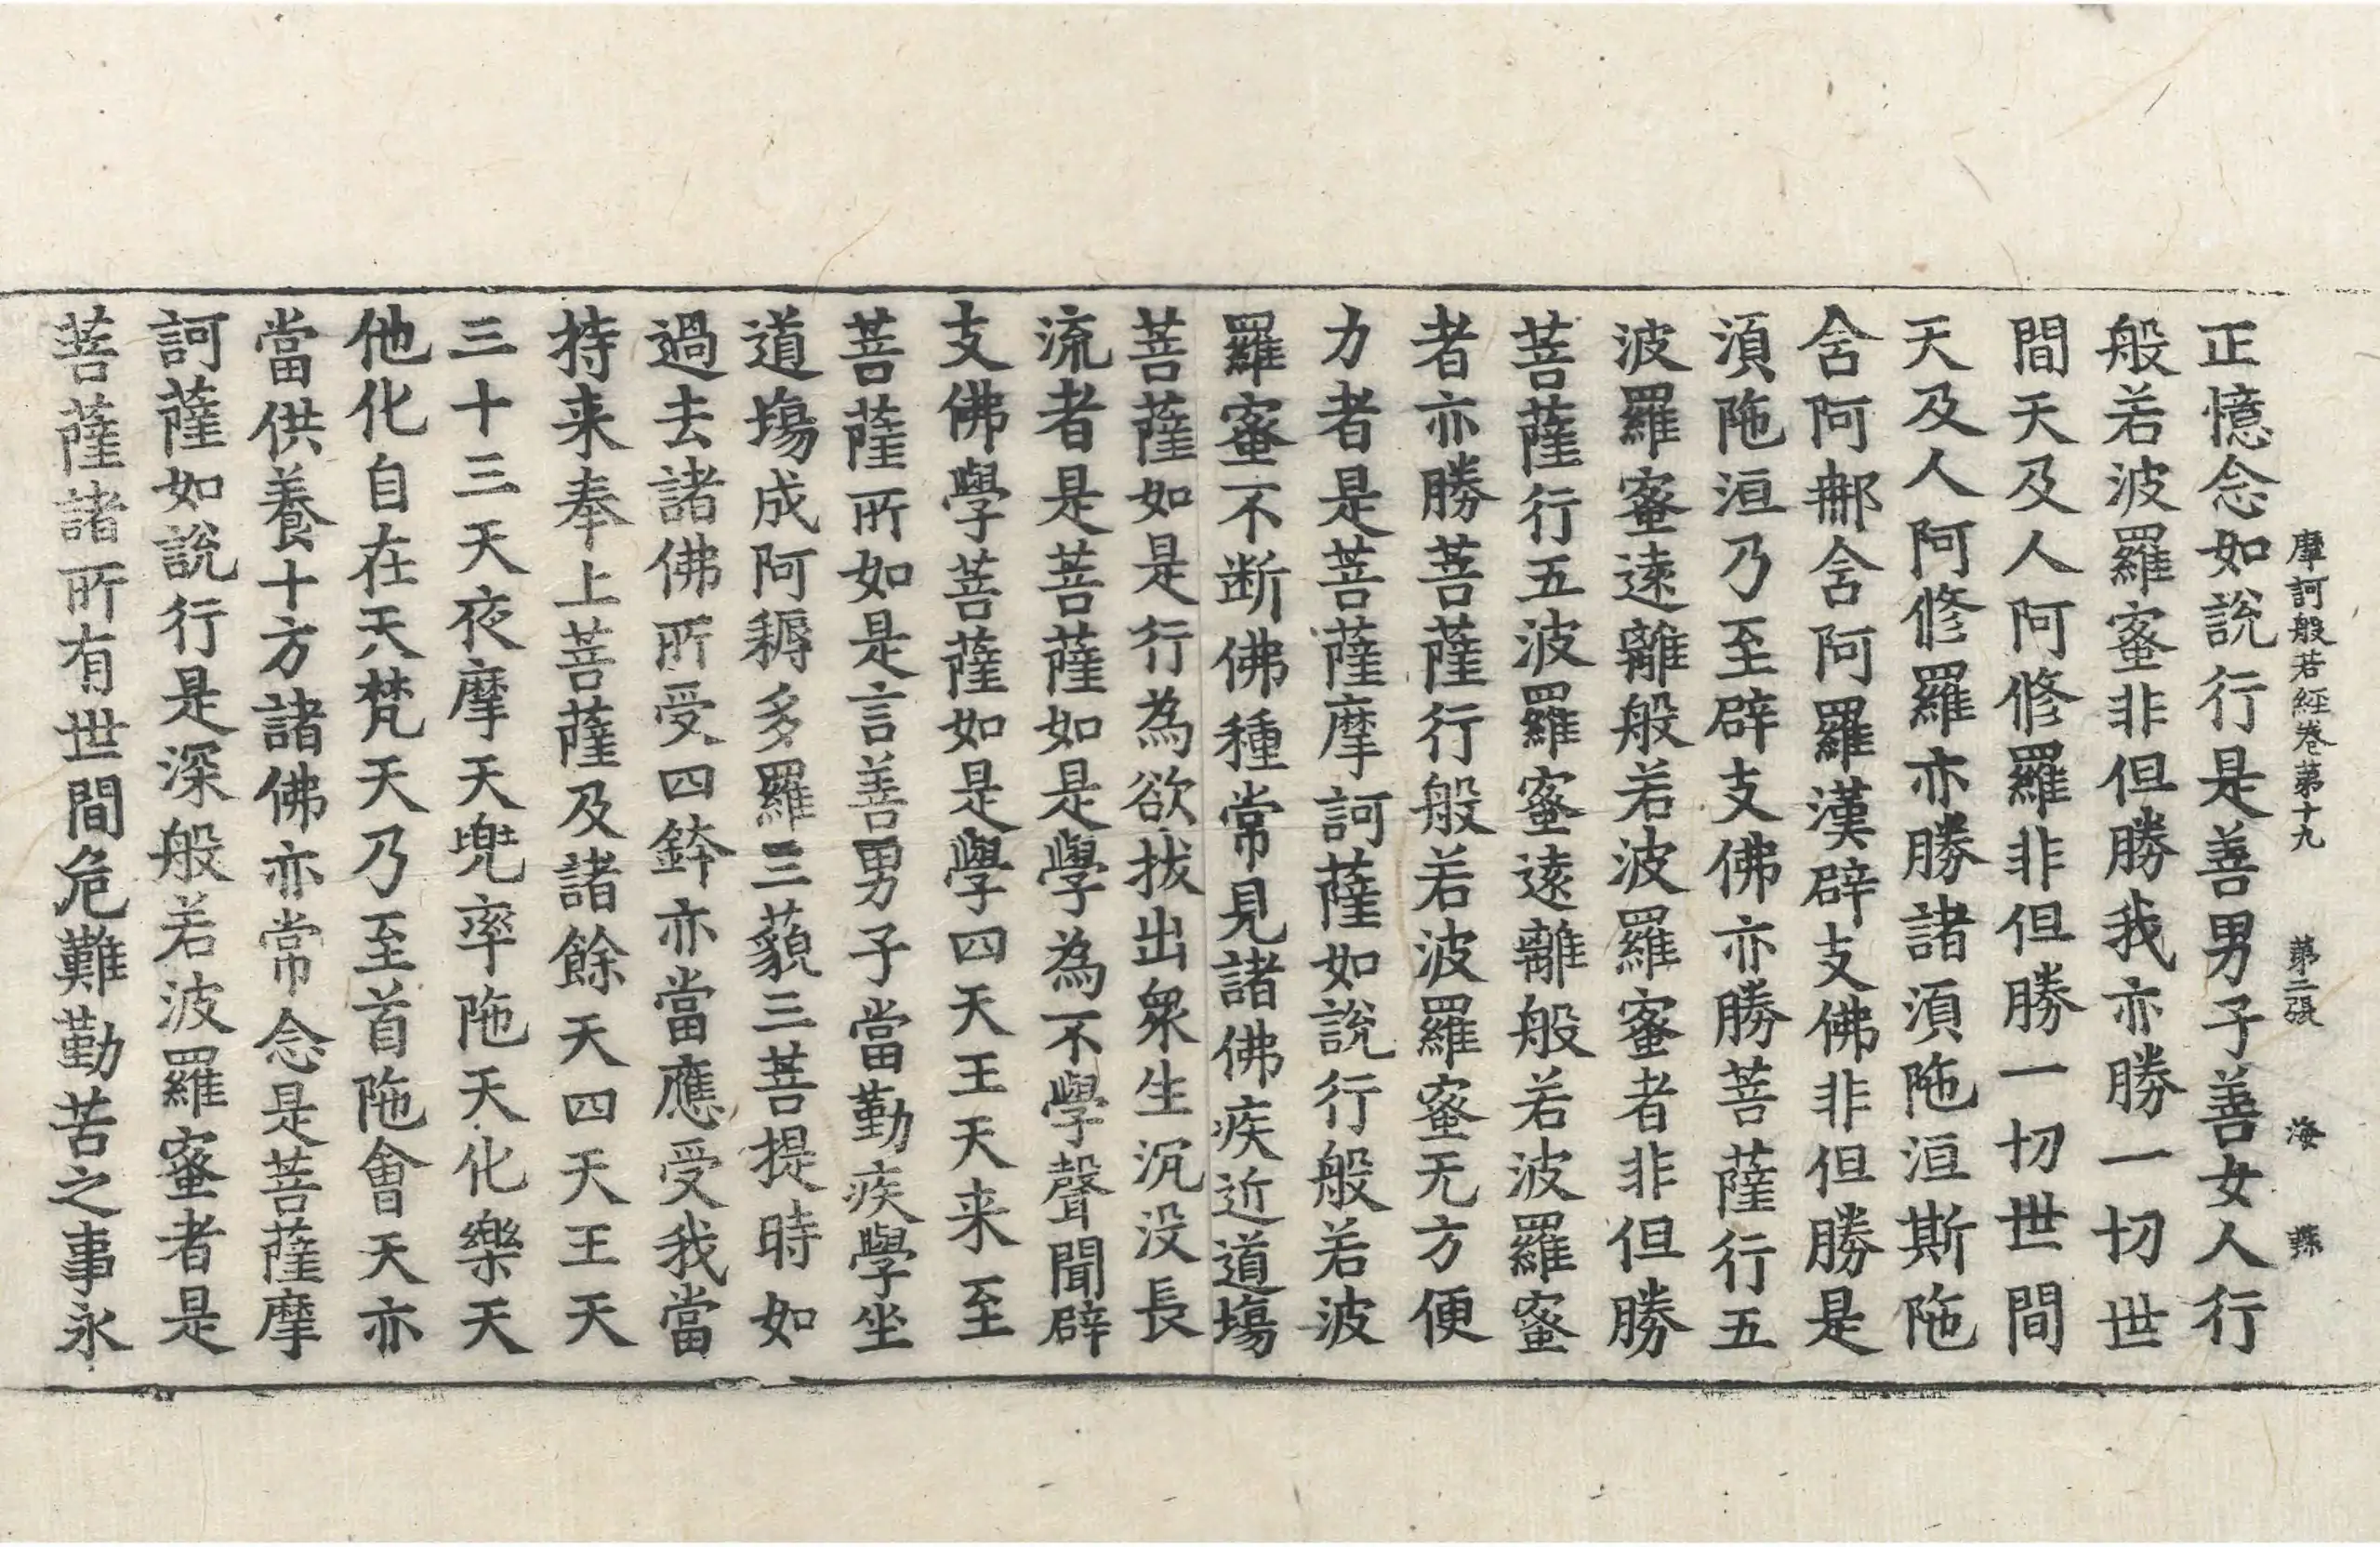 摩訶般若經卷第十九 第二張 海
正憶念如說行是善男子善女人行
般若波羅蜜非但勝我亦勝一切世
間天及人阿修羅非但勝一切世間
天及人阿修羅亦勝諸湏陁洹斯陁
含阿那含阿羅漢辟支佛非但勝是
湏陁洹乃至辟支佛亦勝菩薩行五
波羅蜜遠離般若波羅蜜者非但勝
菩薩行五波羅蜜遠離般若波羅蜜
者亦勝菩薩行般若波羅蜜无方便
力者是菩薩摩訶薩如說行般若波
羅蜜不断佛種常見諸佛疾近道場
菩薩如是行為欲拔出衆生沉没長
流者是菩薩如是學為不學聲聞辟
支佛學菩薩如是學四天王天来至
菩薩所如是言善男子當勤疾學坐
道場成阿耨多羅三藐三菩提時如
過去諸佛所受四鉢亦當應受我當
持来奉上菩薩及諸餘天四天王天
三十三天夜摩天兜率陁天化樂天
他化自在天梵天乃至首陁會天亦
當供養十方諸佛亦常念是菩薩摩
訶薩如說行是深般若波羅蜜者是
菩薩諸所有世間危難勤苦之事永